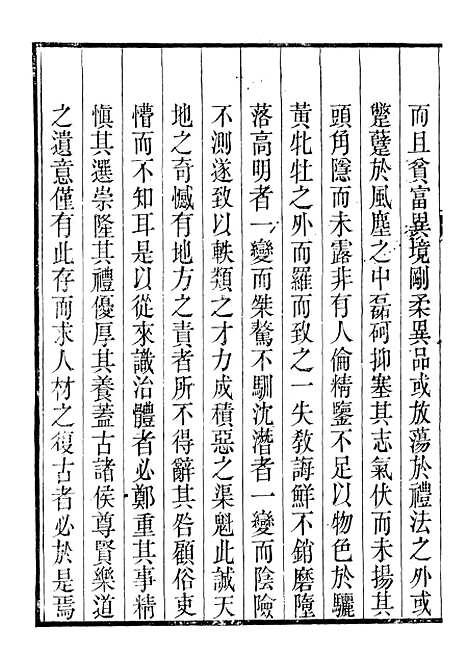 而且貧富異境剛柔異品或放蕩於禮法之外或
蹩躠於風塵之中磊砢抑塞其志氣伏而未揚其
頭角隱而未露非有人倫精鑒不足以物色於驪
黃牝牡之外而羅而致之一失敎誨鮮不銷磨墮
落高明者一變而桀驁不馴沈潛者一變而陰險
不測遂致以軼類之才力成積惡之渠魁此誠天
地之奇憾有地方之責者所不得辭其咎顧俗吏
懵而不知耳是以從來識治體者必鄭重其事精
愼其選崇隆其禮優厚其養蓋古諸侯尊賢樂道
之遺意僅有此存而求人材之復古者必於是焉